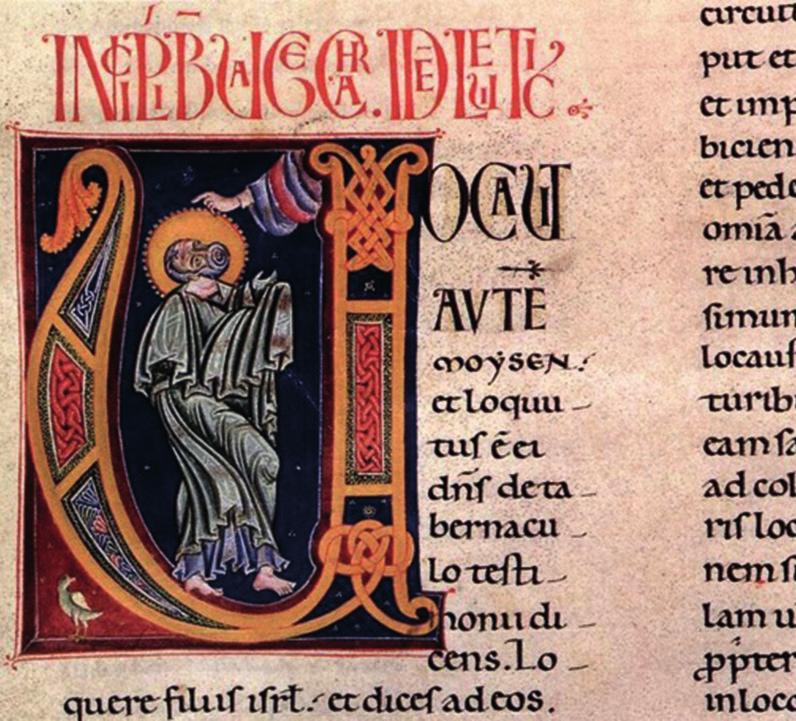 INCIPĪ UAGECHRA. IDĒ LEUITIC
UOCAUIT
AVTĒ
MOYSEN:
et loquu-
tuſ ē ei
dn̄ſ de ta-
bernacu-
lo teſti-
monii di-
cens. Lo-
quere filiiſ iſrł: et diceſ ad eoſ.
circu
put et
et imp
bicien
et pede
omiā
re inh
ſimun
locauſ
turib
eam ſa
ad col
riſ loc
nem
lam u
ꝓpter
in loco